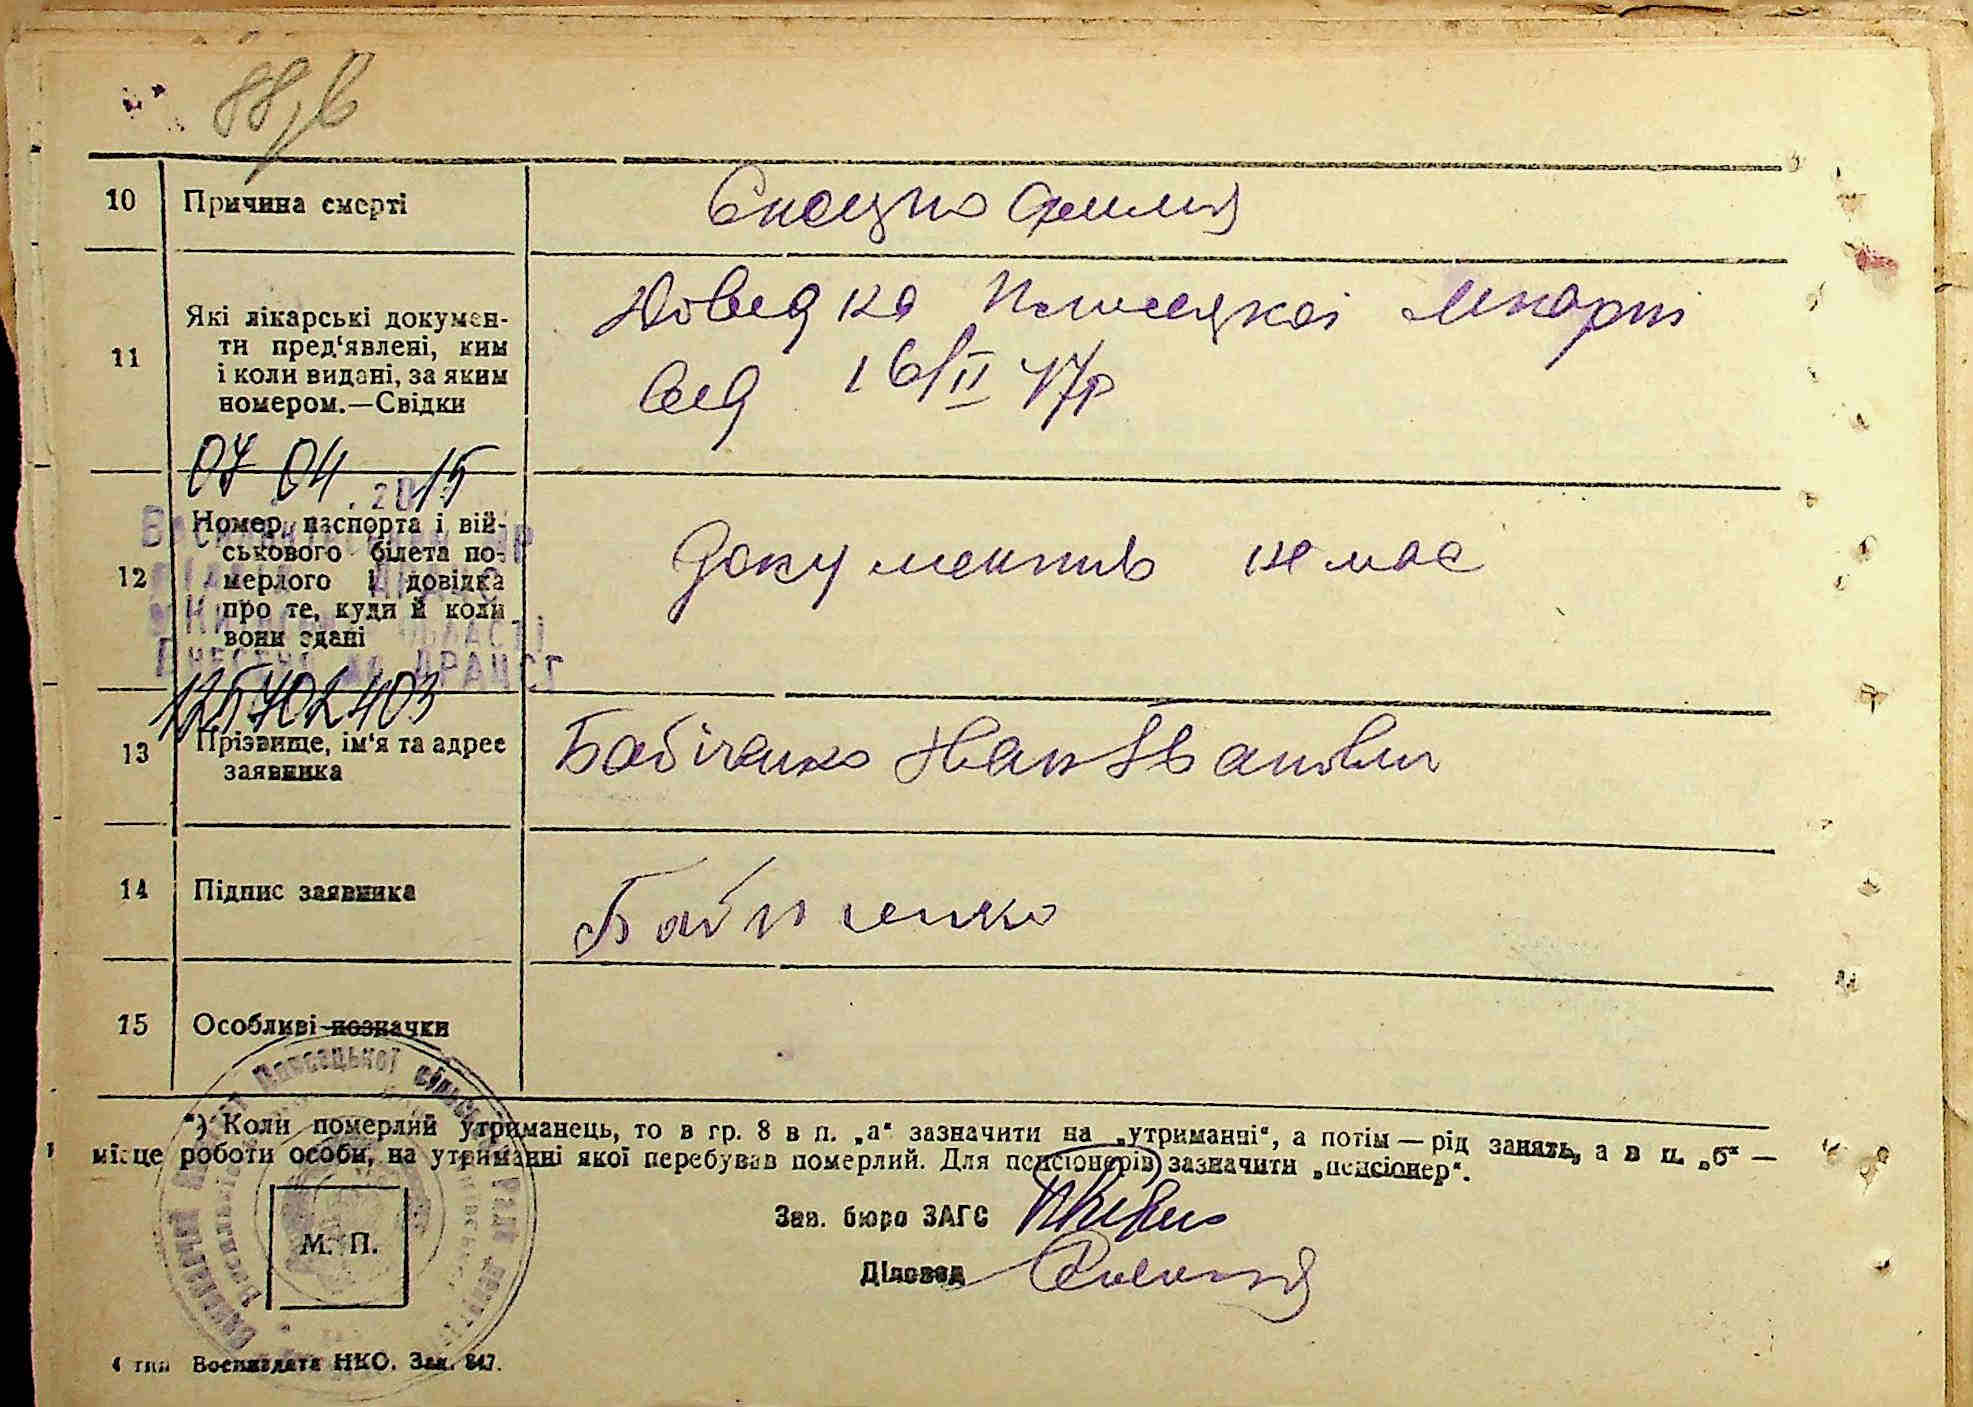 88
10 Причина смерті
11 Які лікарські докумен-
ти пред'явлені, ким
і коли видані, за яким
номером.—Свідки
Довідка лікарні
від 16/II 47р
07 04 .2015
12 Номер паспорта і вій-
ськового білета по-
мерлого і довідка
про те, куди й коли
вони здані
Документів немає
125702403
13 Прізвище, ім'я та адрес
заявника
Бабіченко Іван Іванович
14 Підпис заявника
Бабиченко
15 Особливі позначки
*) Коли померлий утриманець, то в гр. 8 в п. „а" зазначити на „утриманні", а потім — рід занять, а в п. „б" —
місце роботи особи, на утриманні якої перебував померлий. Для пенсіонерів зазначити „пенсіонер".
Зав. бюро ЗАГС
Діловод
М. П.
Воениздата НКО. Зак. 847.